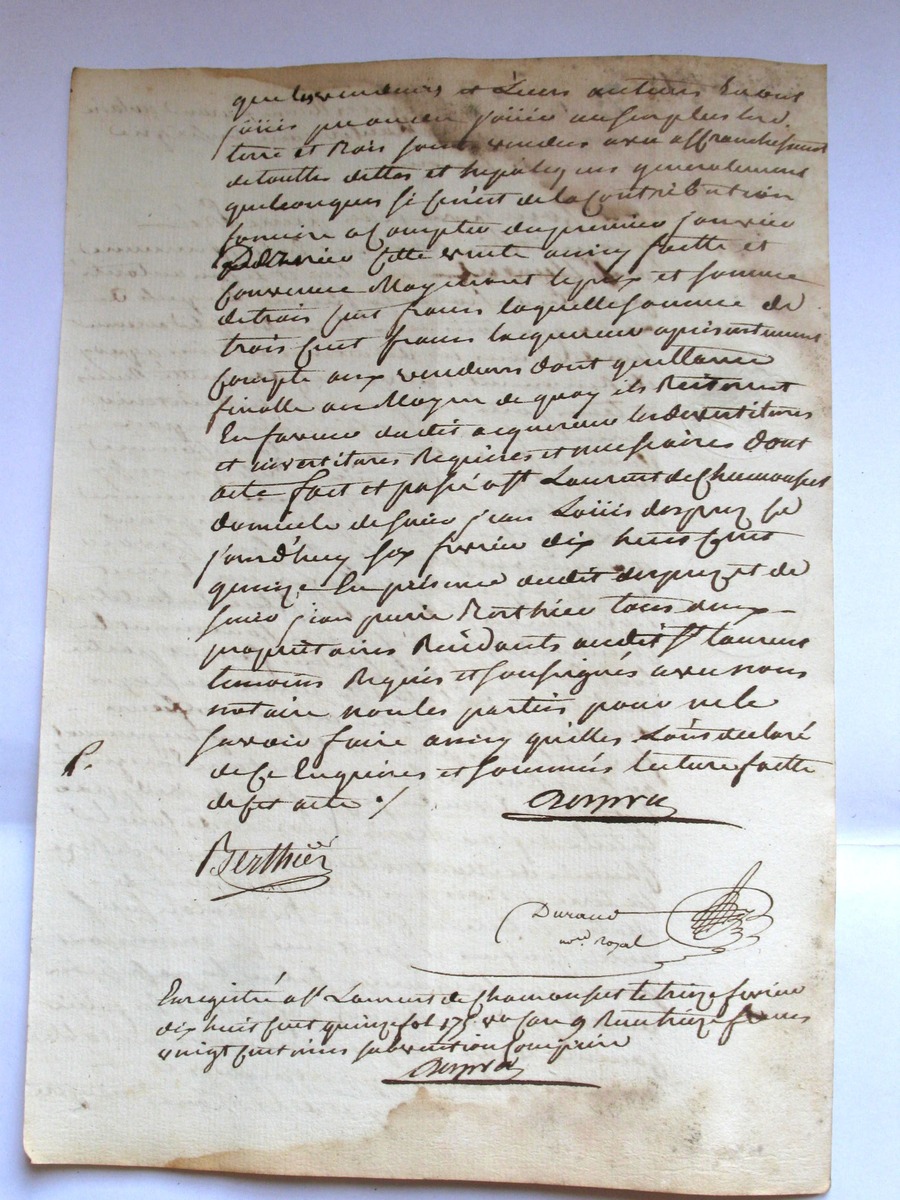 que les vendeurs et Leurs auteurs En ont
joüis pu ou dû joüir au surplus les
terre et Bois sont vendus avec affranchissement
de toutes dettes et hipoteques generalement
quelconques si ce n'est de la Contribution
fonciere a Compter du premier janvier
dernier Cette vente ainsy faitte et
Convenue Moyennant le prix et somme
de trois Cent francs laquelle somme de
trois Cent francs lacquereur a présentement
Compté aux vendeurs dont quittance
finalle au Moyen de quoy ils
En faveur dudit acquereur les devestitures
et investitures Requises et necessaires Dont
acte fait et passé a St Laurent de Chamousset
domicile de sieur jean Loüis desprez ce
jourd'huy six fevrier dix huit Cent
quinze En présence dudit desprez et de
sieur jean pierre Berthier tous deux
propriétaires Residants audit St Laurent
temoins Requis et soussignés avec nous
notaire non les parties pour ne le
savoir faire ainsy qu'elles L'ont declaré
de Ce Enquises et sommées lecture faitte
de Cet acte ./
Desprez
Berthier
Durand
nore. royal
Enregistré a St Laurent de Chamousset le treize fevrier
dix huit Cent quinze fol 175 vo Case 9 Reçu treize francs
vingt Centimes subvention Comprise
Desprez